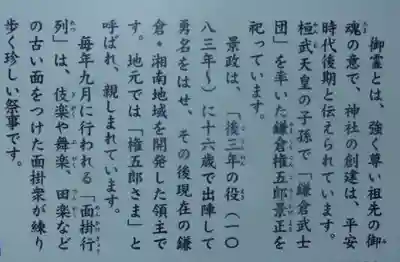 御霊とは、強く尊い祖先の御
魂の意で、神社の創建は、平安
時代後期と伝えられています。
桓武天皇の子孫で「鎌倉武士
団」を率いた鎌倉権五郎景正を
祀っています。
景政は、「後三年の役」（一〇
八三年〜）に十六歳で出陣して
勇名をはせ、その後現在の鎌
倉・湘南地域を開発した領主で
す。地元では「権五郎さま」と
呼ばれ、親しまれています。
毎年九月に行われる「面掛行
列」は、伎楽や舞楽、田楽など
の古い面をつけた面掛衆が練り
歩く珍しい祭事です。